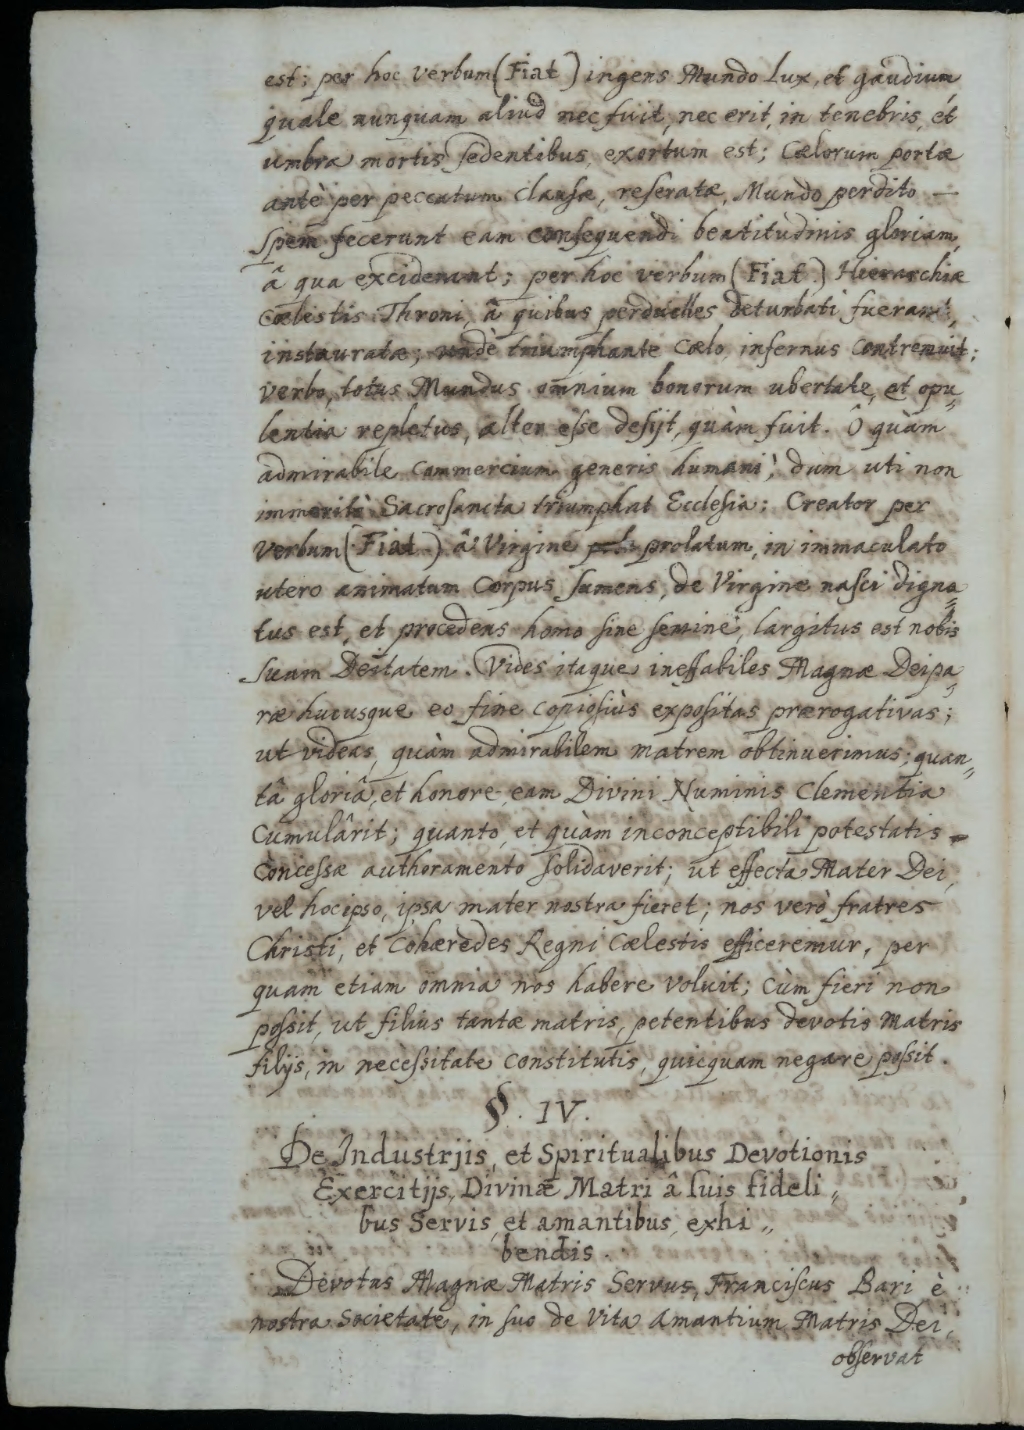 est; per hoc verbum (Fiat) ingens Mundo Lux, et gaudium
quale nunquam aliud nec fuit, nec erit, in tenebris, et
umbra mortis sedentibus, exortum est; Cœlorum portæ
antè per peccatum clausæ, reseratæ, Mundo perdito —
spem fecerunt eam consequendi beatitudinis gloriam,
â qua exciderant; per hoc verbum (Fiat) Hierarchiæ
cœlestis Throni, â quibus perduelles deturbati fuerant,
instauratæ; undè triumphante Cœlo, infernus contremuit;
verbo, totus Mundus omnium bonorum ubertate, et opu„
lentia repletus, alter esse desijt, quàm fuit. Ô quàm
admirabile commercium generis humani, dum uti non
immeritò Sacrosancta triumphat Ecclesia: Creator per
verbum (Fiat) â Virgine prolatum, in immaculato
utero animatum corpus sumens, de Virgine nasci digna„
tus est, et procedens homo sine semine, largitus est nobis
suam Deitatem. Vides itaque ineffabiles Magnæ Deipa„
ræ hucusque eo fine copiosiùs expositas prærogativas;
ut videas, quàm admirabilem matrem obtinuerimus; quan„
tâ gloriâ, et honore, eam Divini Numinis Clementia
cumulârit; quanto, et quàm inconceptibili potestatis
concessæ authoramento solidaverit; ut effecta Mater Dei,
vel hoc ipso, ipsa mater nostra fieret; nos verò fratres
Christi, et Cohæredes Regni Cælestis efficeremur, per
quam etiam omnia nos habere voluit; cùm fieri non
possit, ut filius tantæ matris, petentibus devotis Matris
filijs, in necessitate constitutis, quicquam negare possit.
§. IV.
De Industrjis, et Spiritualibus Devotionis
Exercitijs, Divinæ Matri â suis fideli„
bus Servis, et amantibus, exhi„
bendis.
Devotus Magnæ Matris Servus, Franciscus Bari è
nostra Societate, in suo de Vita Amantium Matris Dei,
observat